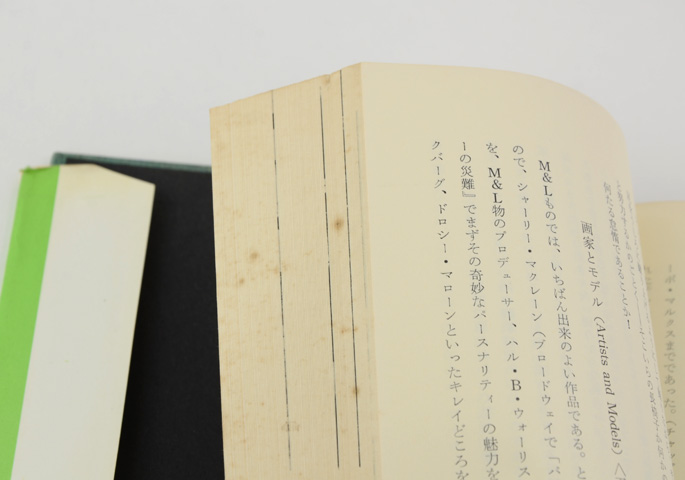 何たる怠惰であることか！
画家とモデル〈Artists and Models〉
M&Lものでは、いちばん出来のよい作品である。と
ので、シャーリー・マクレーン（ブロードウェイで「パ
を、M&L物のプロデューサー、ハル・B・ウォーリス
ーの災難』でまずその奇妙なパースナリティーの魅力を
クバーグ、ドロシー・マローンといったキレイどころを